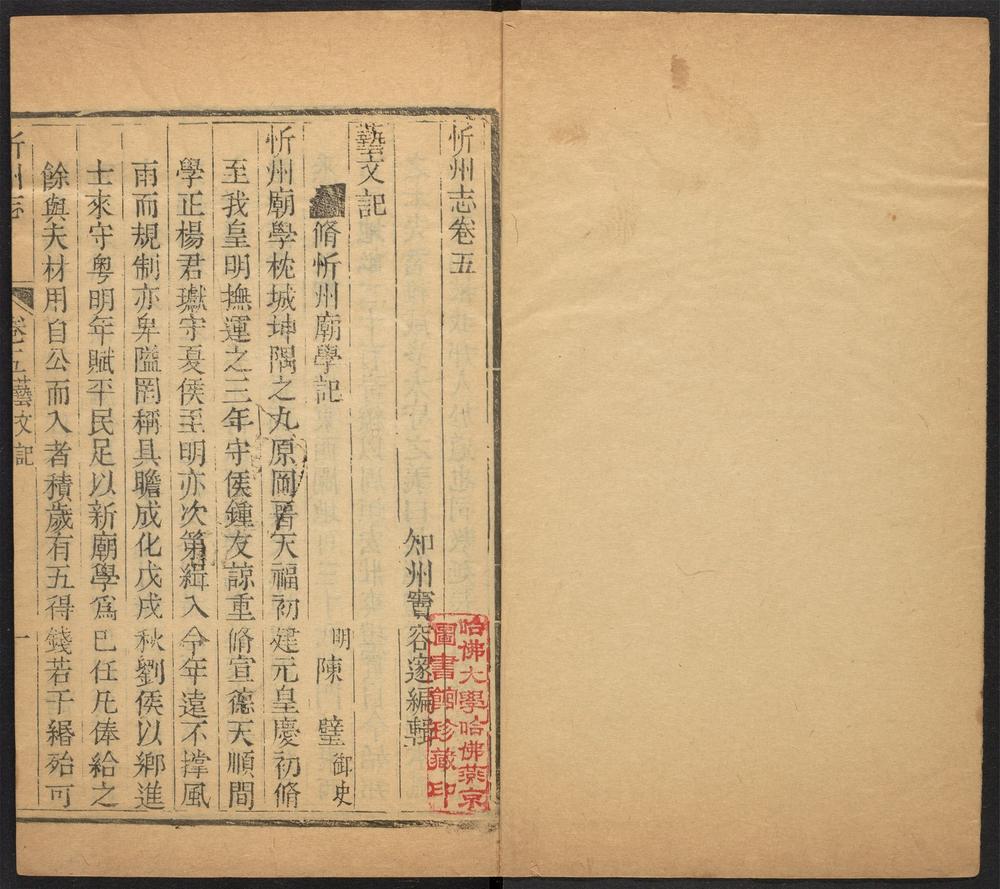 忻州志卷五
知州竇容邃編輯
藝文記
脩忻州廟學記
明陳 璧御史
忻州廟學枕城坤隅之九原岡晉天福初建元皇慶初脩
至我皇明撫運之三年守侯鍾友諒重脩宣德天順間
學正楊君瓛守夏侯至明亦次第緝入今年遠不撑風
雨而規制亦卑隘罔稱具瞻成化戊戌秋劉侯以鄉進
士來守粤明年賦平民足以新廟學爲巳任凡俸給之
餘與夫材用自公而入者積歲有五得錢若干緡殆可
忻州志
卷五藝文記
一
哈佛大學哈佛燕京
圖書館珍藏印